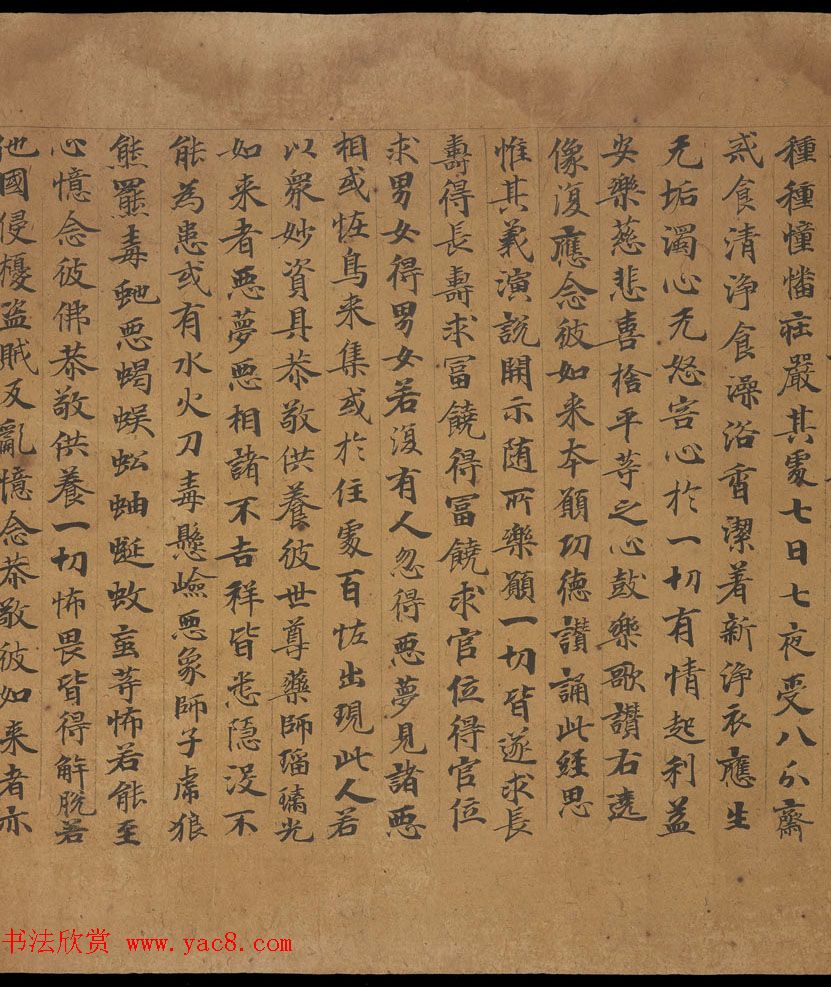 種種幢幡莊嚴其處七日七夜受八分齋
戒食清浄食澡浴香潔著新浄衣應生
无垢濁心无怒害心於一切有情起利益
安樂慈悲喜捨平等之心鼓樂歌讃右遶
像復應念彼如来本願功德讃誦此經思
惟其義演說開示随所樂願一切皆遂求長
壽得長壽求冨饒得冨饒求官位得官位
求男女得男女若復有人忽得惡夢見諸惡
相或恠鳥来集或於住處百恠出現此人若
以衆妙資具恭敬供養彼世尊藥師瑠璃光
如来者惡夢惡相諸不吉祥皆悉隱没不
能為患或有水火刀毒懸嶮惡象師子虎狼
熊羆毒虵惡蝎蜈蚣蚰蜒蚊䖟等怖若能至
心憶念彼佛恭敬供養一切怖畏皆得解脱若
他國侵擾盗賊反亂憶念恭敬彼如来者亦
书法欣赏 www.yac8.com